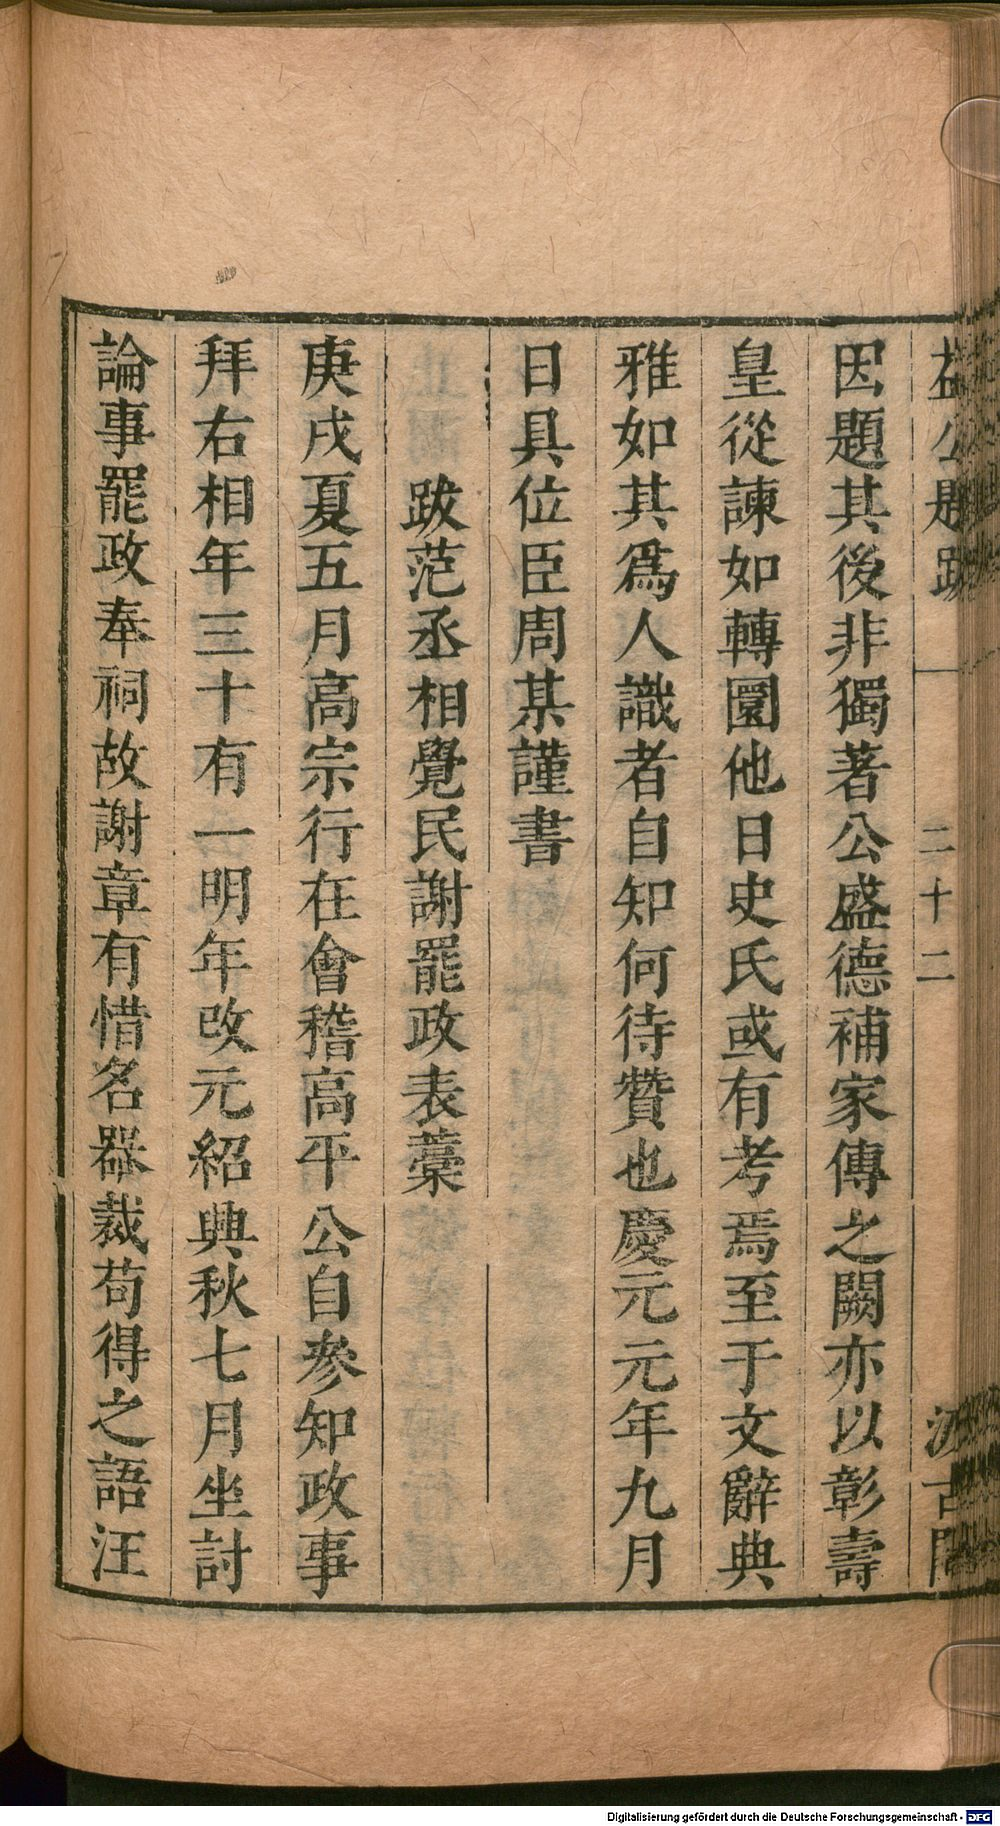 益公題跋
二十二
汲古閣
因題其後非獨著公盛德補家傳之闕亦以彰壽
皇從諫如轉圜他日史氏或有考焉至于文辭典
雅如其爲人識者自知何待贊也慶元元年九月
日具位臣周某謹書
跋范丞相覺民謝罷政表藳
庚戌夏五月高宗行在會稽高平公自參知政事
拜右相年三十有一明年改元紹興秋七月坐討
論事罷政奉祠故謝章有惜名器裁苟得之語汪
Digitalisierung gefördert durch die Deutsche Forschungsgemeinschaft - DFG